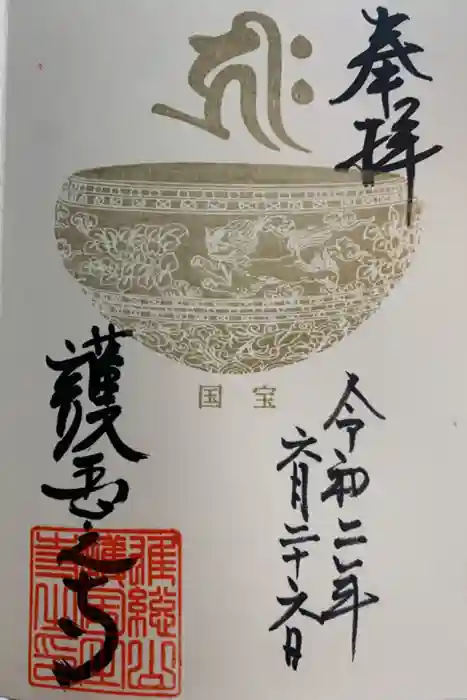 奉拝
国宝
令和二年
六月二十六日
護国之寺
雄総山